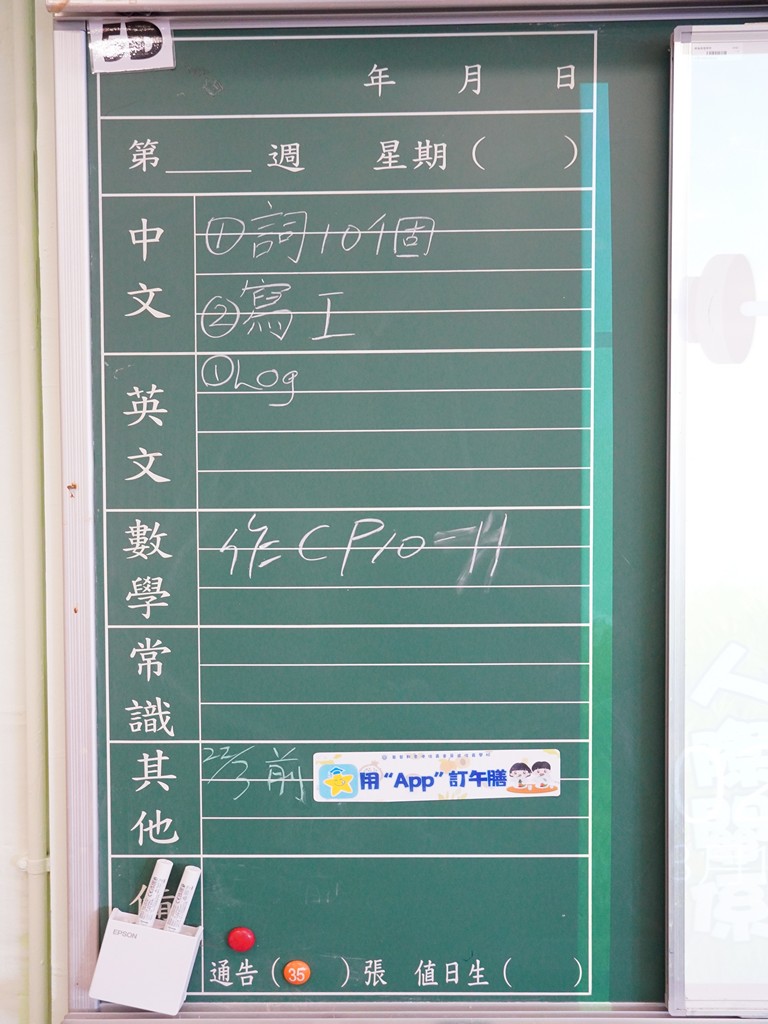 5D
年 月 日
第____週 星期( )
中文
①詞10個
②寫工
英文
①Log
數學
作CP10-11
常識
其他
22/3前
用“App”訂午膳
EPSON
通告(35)張 值日生( )